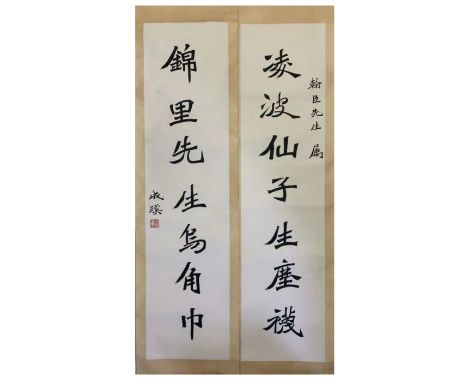 凌波仙子生塵襪
翰臣先生 属
錦里先生烏角巾